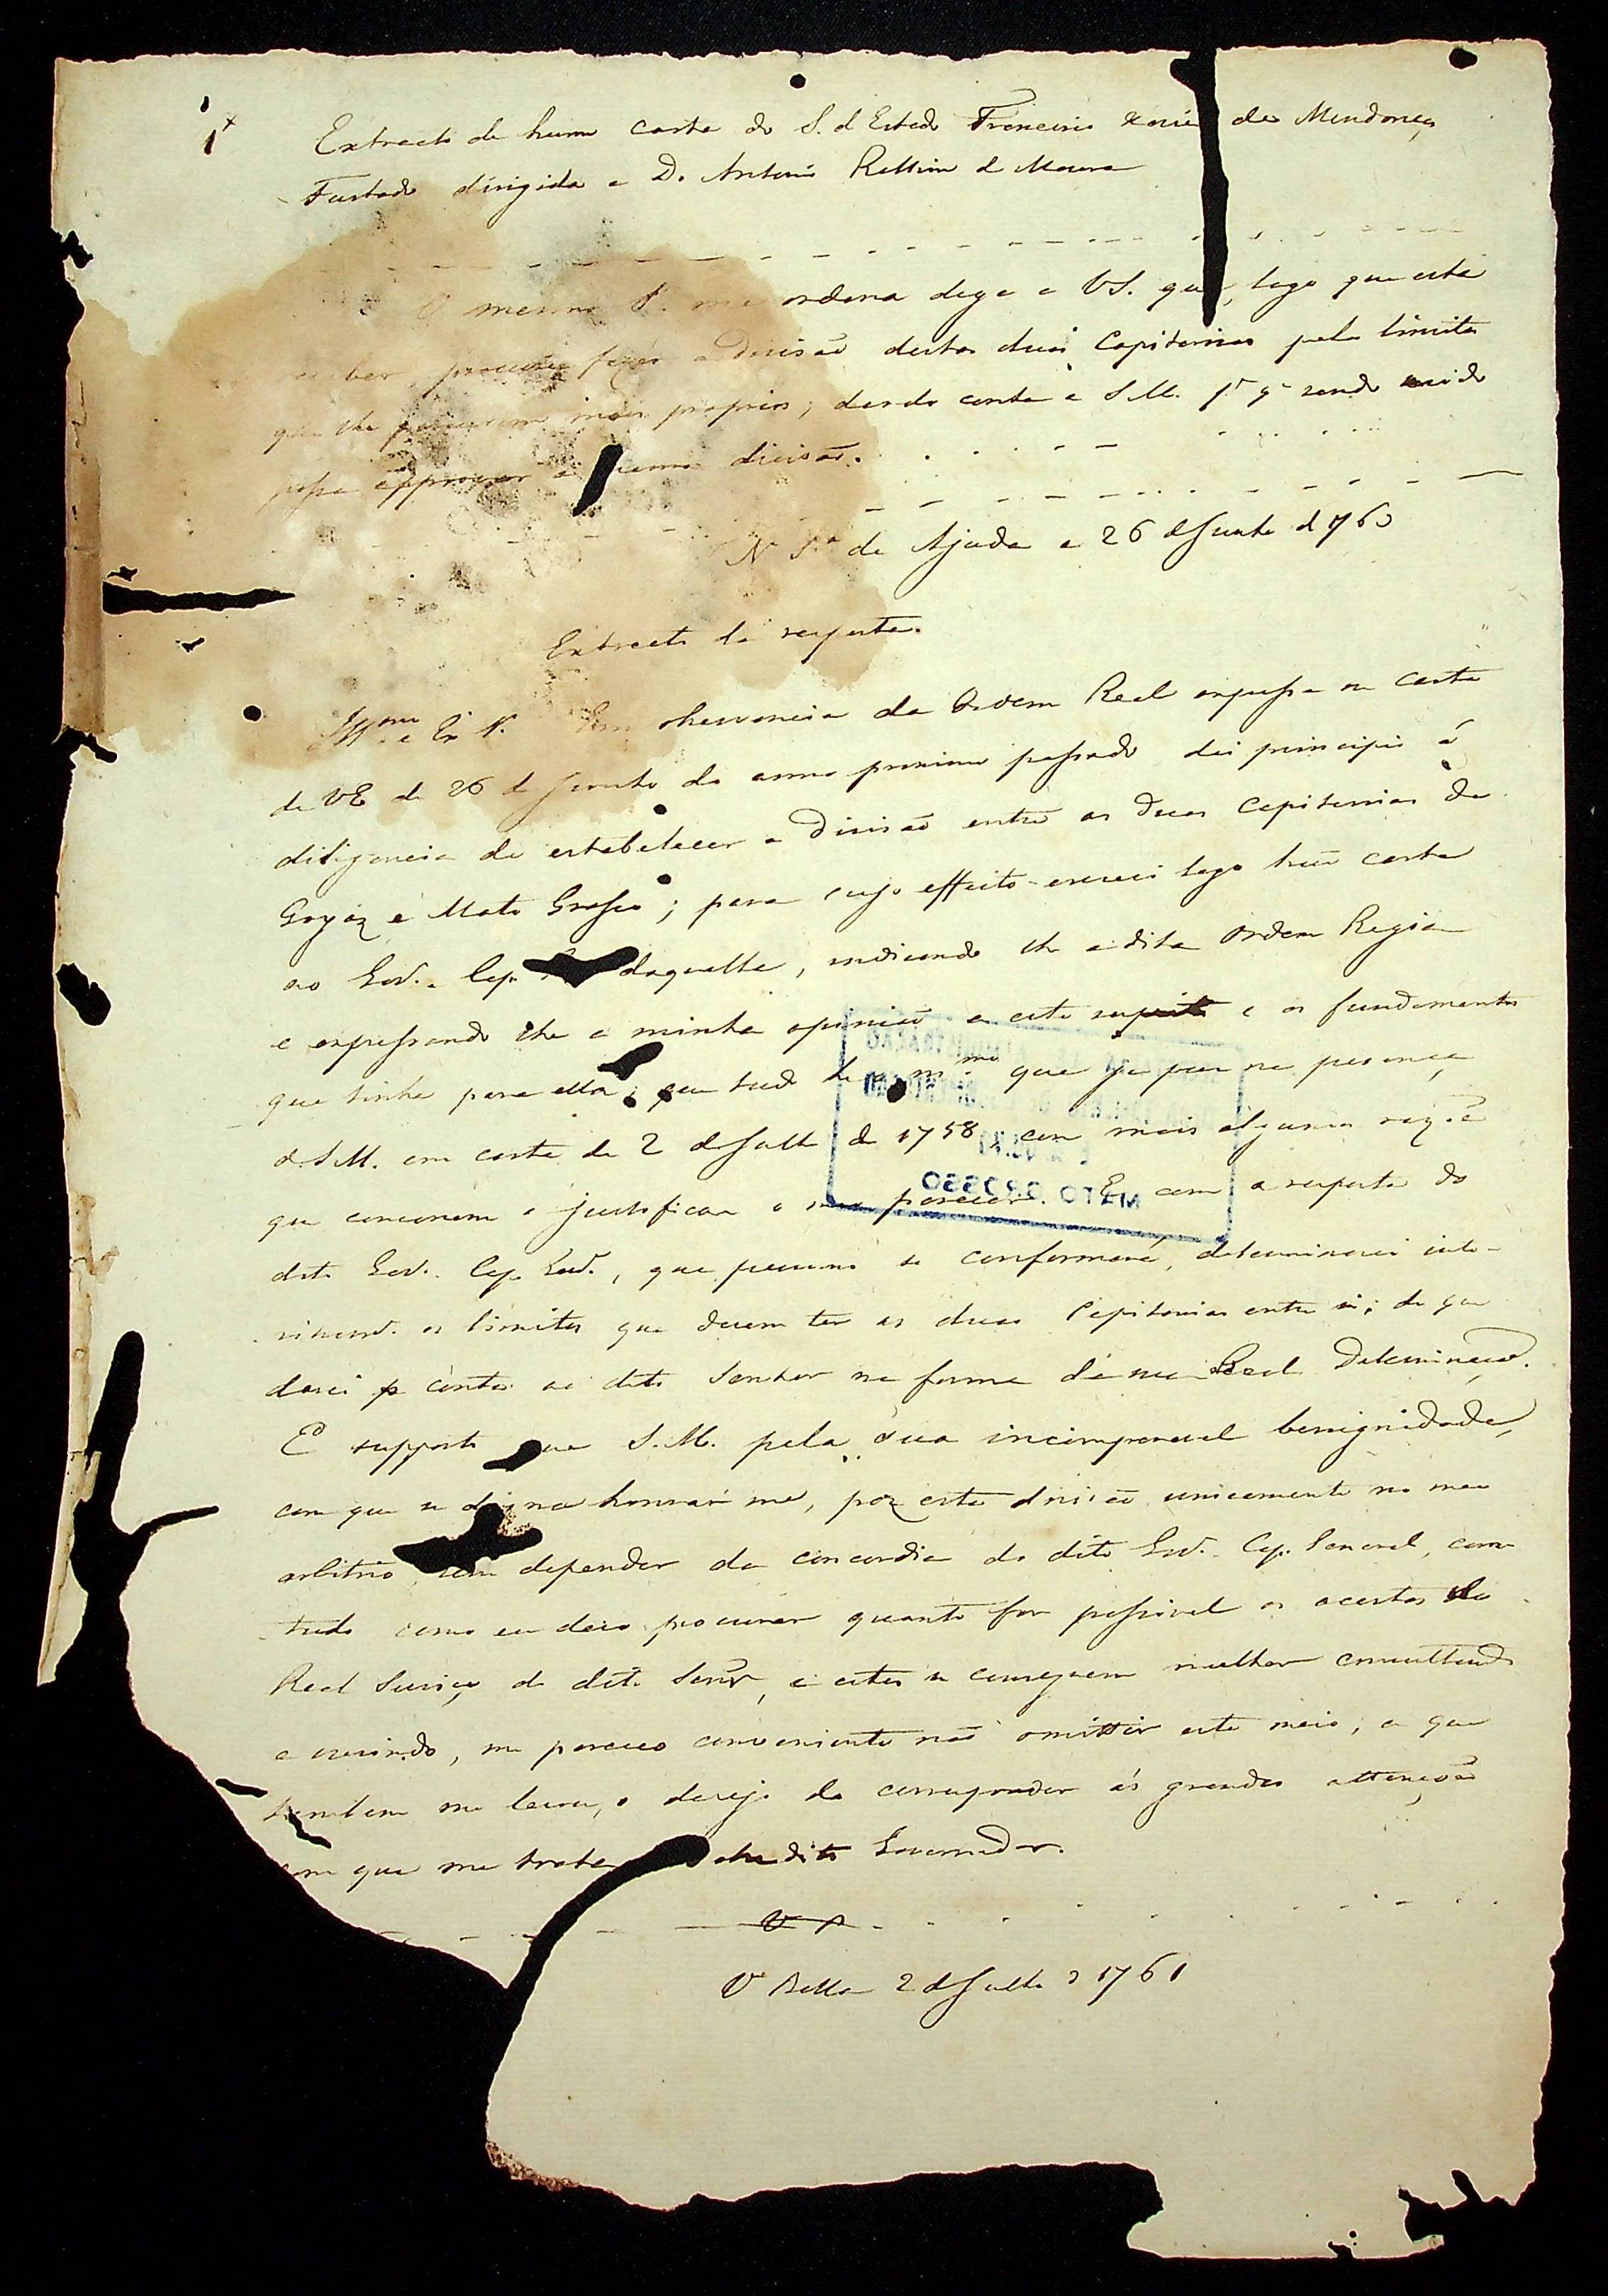 1ˣ
Extracto de huma carta do S. d Estado Francisco Xavier de Mendonça
Furtado dirigida a D. Antonio Rollim d Moura
O mesmo S. me ordena diga a VS. que, logo que esta
receber, procure fazer a Divisão destas duas Capitanias pelos limites
que lhe parecerem mais proprios, dando conta a S.M. pª qᵉ sendo servido
possa approvar a mesma divisão.
Nª Sª da Ajuda a 26 d Junho d 1760
Extracto da resposta.
Illᵐᵒ e Ex Sʳ. Em observancia da Ordem Real expressa na carta
de VE de 26 d Junho do anno proximo passado dei principio á
diligencia de estabelecer a Divisão entre as duas Capitanias de
Goyáz e Mato Grosso; para cujo effeito escrevi logo hua carta
ao Gov. e Cap. daquella, indicando lhe a dita Ordem Regia
e expressando lhe a minha opinião a este respeito e os fundamentos
que tinha para ella; que tudo he o mᵐᵒ que ja puz na presença
d.S.M. em carta de 2 d Julho de 1758, com mais algumas razoẽs
que concorrem a justificar o meu parecer. E com a resposta do
dito Gov. Cap. Gen., que presumo se conformará, determinarei inte-
rinamᵉ. os limites que devem ter as duas Capitanias entre si; de que
darei conta ao dito Senhor na forma da sua Real Determinação.
E supposto que S.M. pela sua incomparavel benignidade,
com que se digna honrar me, poz esta divisão unicamente no meu
arbitrio, sem depender da concordia do dito Gov. Cap. General, com
tudo como eu devo procurar quanto for possivel os acertos do
Real Serviço do dito Senʳ, e estes se conseguem melhor consultando
e ouvindo, me pareceo conveniente não omittir este meio, a que
tambem me levou o desejo de corresponder ás grandes attençoẽs
com que me trata o sobredito Governador.
Vª Bella 2 d Julho d 1761
MATO GROSSO